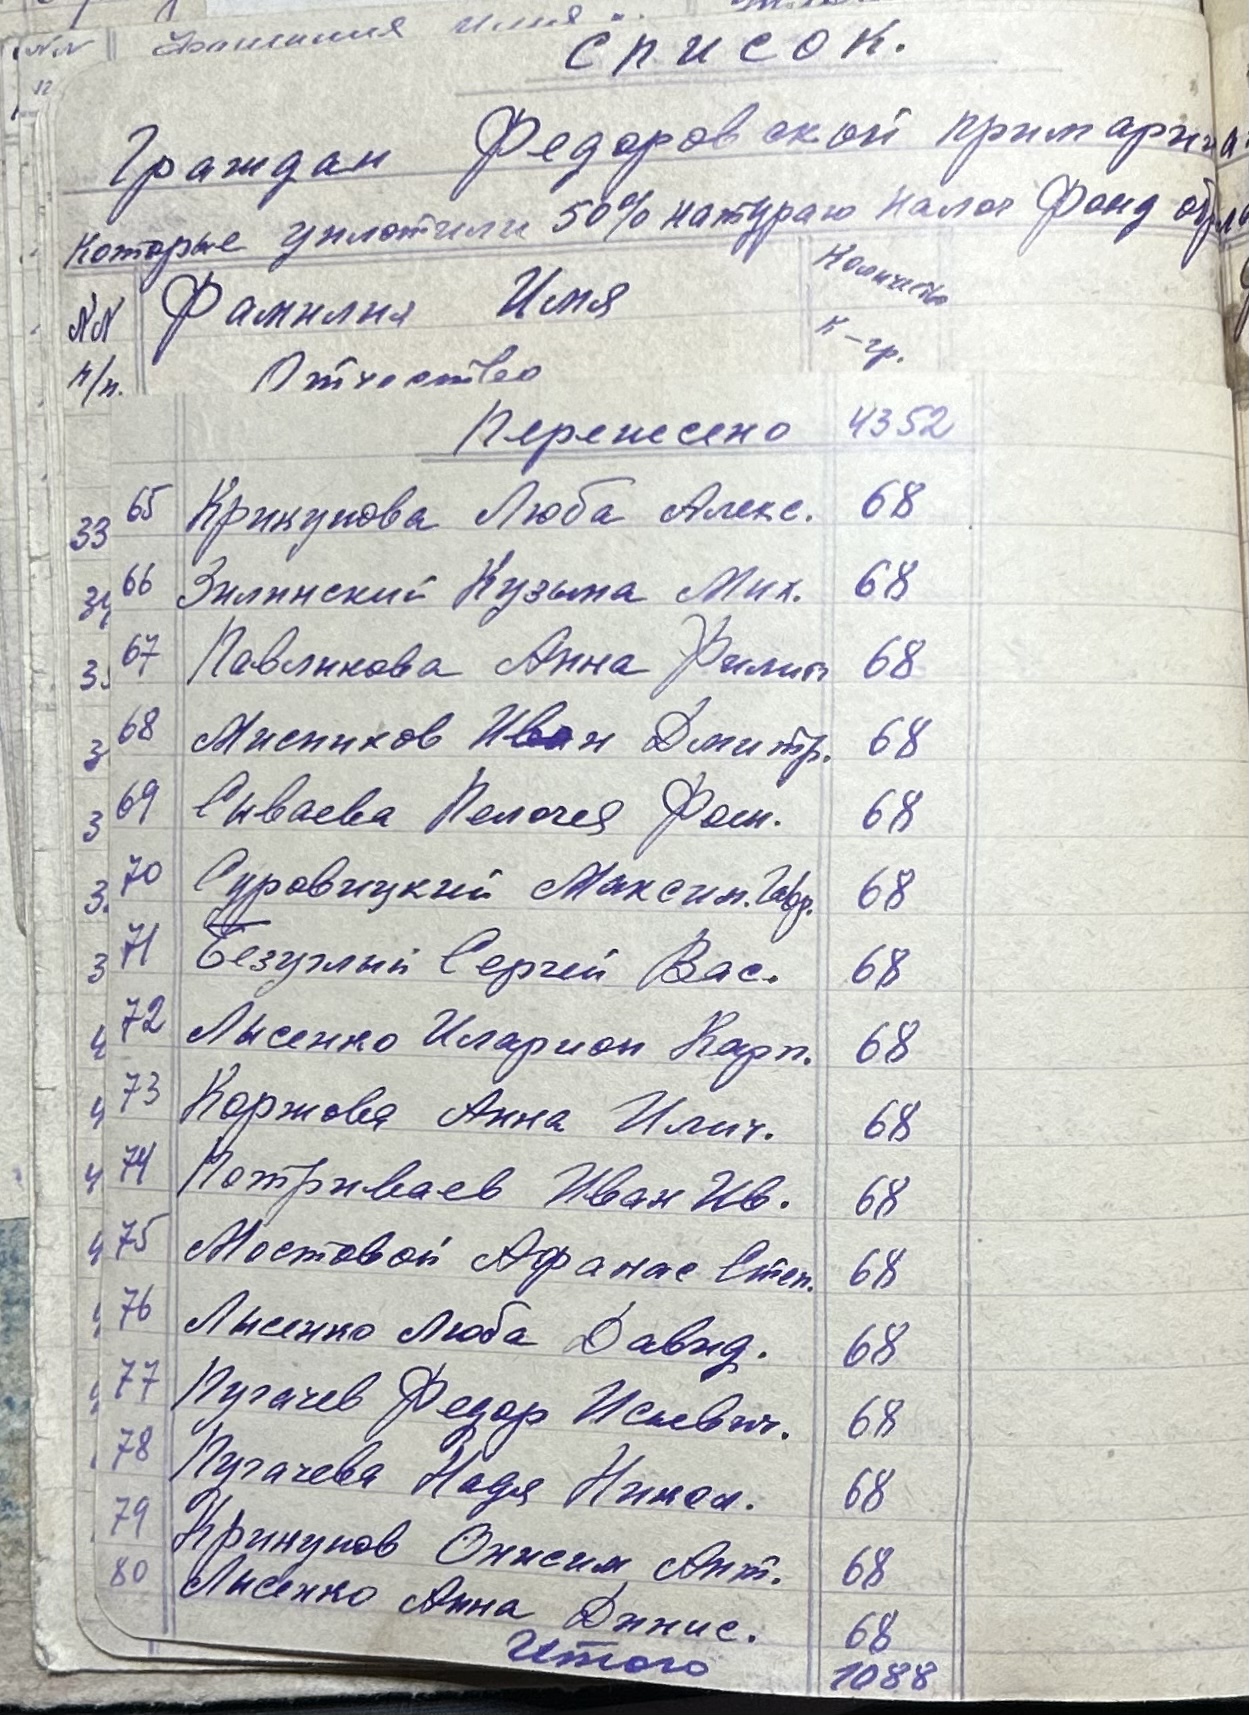 NN Фамилия имя
Список.
Граждан Федоровской примарии
Которые уплотили 50% натураю налог Фонд
NN Фамилия Имя Количество
п/п. Отчество к-гр.
Перенесено 4352
33 65 Крикунова Люба Алекс. 68
34 66 Зилинский Кузьма Мих. 68
3 67 Павликова Анна Филип 68
3 68 Мисников Иван Дмитр. 68
3 69 Сываева Пелогея Фом. 68
3. 70 Суровицкий Максим. Гавр. 68
3 71 Безуглый Сергей Вас. 68
4 72 Лысенко Иларион Карп. 68
4 73 Коржова Анна Илич. 68
4 74 Потриваев Иван Ив. 68
4 75 Мостовой Афанас Степ. 68
76 Лысенко Люба Давид. 68
77 Пугачев Федор Исаевич. 68
78 Пугачева Надя Никол. 68
79 Крикунов Онисим Ант. 68
80 Лысенко Анна Динис. 68
Итого 1088